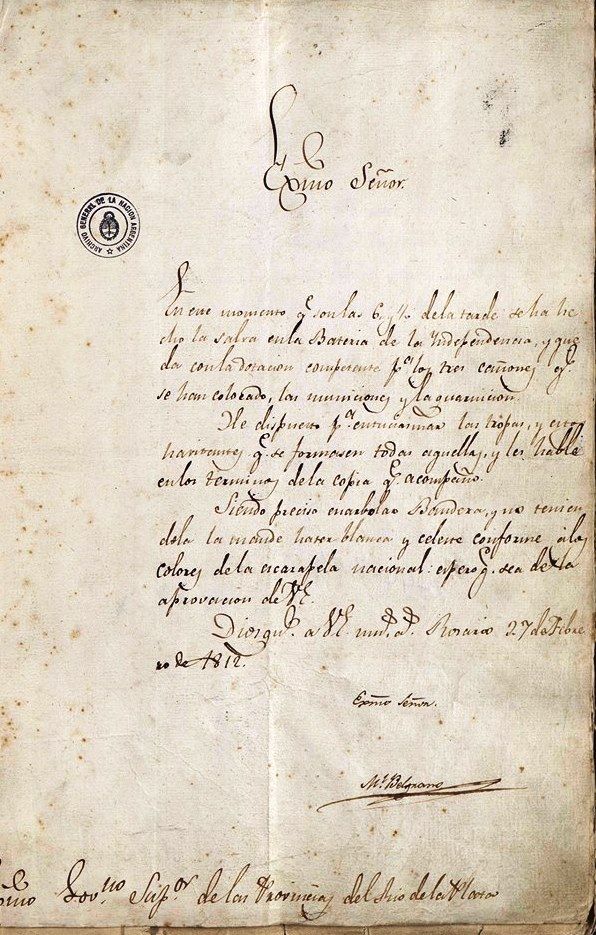 Exmo Señor.
ARCHIVO GENERAL DE LA NACION ARGENTINA
En este momento q.e son las 6 y ½ de la tarde se ha he
cho la salva en la Bateria de la Independencia, y que
da con la dotacion competente p.a los tres cañones q.e
se han colocado, las municiones y la guarnicion.
He dispuesto p.a entuciasmar las tropas, y estos
havitantes q.e se formasen todas aquellas, y les hablé
en los terminos de la copia q.e acompaño.
Siendo preciso enarbolar Bandera, y no tenien
dola la mandé hacer blanca y celeste conforme á los
colores de la escarapela nacional: espero q.e sea de la
aprovacion de VE.
Dios gu.e a VE. m.s a.s Rosario 27 de Febre
ro de 1812.
Exmo Señor.
M.l Belgrano
Exmo Gov.no Sup.or de las Provincias del Rio de la Plata